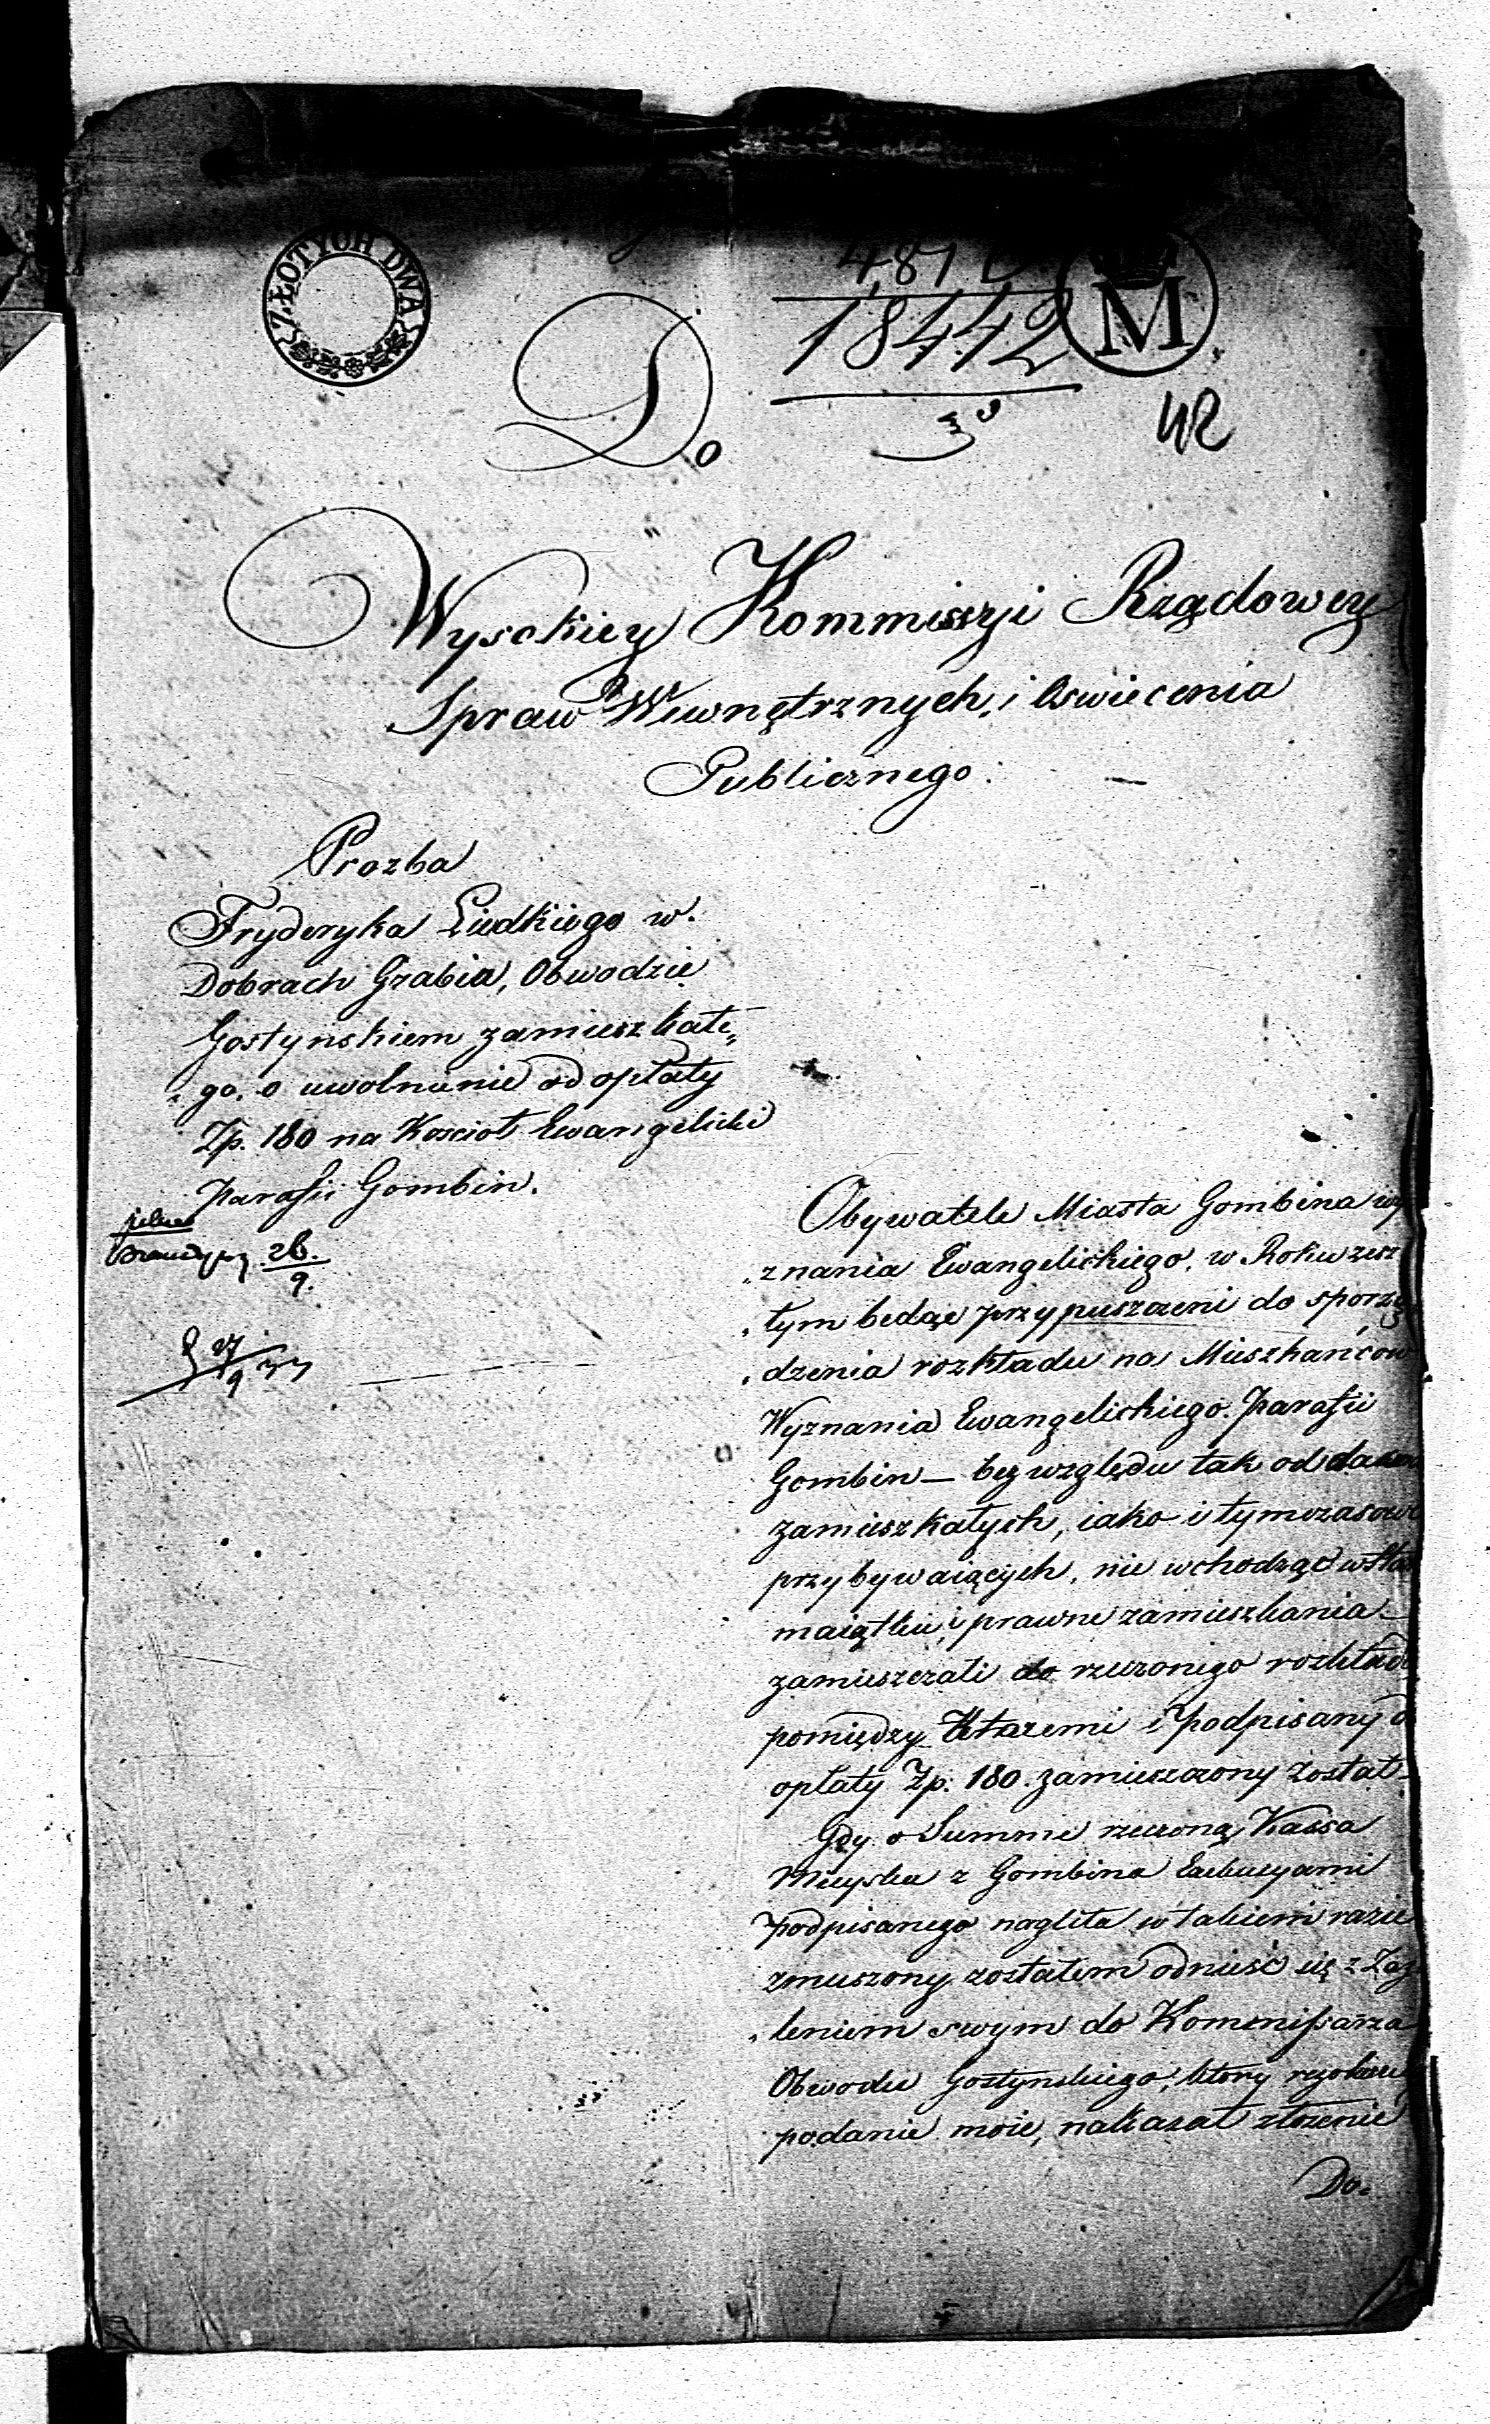 ZŁOTYCH DWA
18442
M
42
Do
Wysokiey Kommissyi Rządowey
Spraw Wewnętrznych, i Oswiecenia
Publicznego.
Prozba
Fryderyka Liedkiego w.
Dobrach Grabia, Obwodzie
Gostynskiem zamieszkałe„
„go. o uwolnienie od opłaty
Zp. 180 na Koscioł Ewangelicki
parafii Gombin.
26.
9.
27
9 33
Obywatele Miasta Gombina wy
„znania Ewangelickiego, w Roku zesz
„łym będąc przypuszczeni do sporzą
„dzenia rozkładu na Mieszkańców
Wyznania Ewangelickiego. parafii
Gombin — bez względu tak od dawna
zamieszkałych, iako i tymczasowo
przybywaiących, nie wchodząc w stan
maiątku, i prawne zamieszkania —
zamieszczali do rzeczonego rozkładu
pomiędzy któremi i podpisany do
opłaty Zp. 180. zamieszczony został —
Gdy o Summe rzeczoną Kassa
Mieyska z Gombina Exekucyami
podpisanego nagliła w takiem razie
zmuszony zostałem odnieść się z Zaża
„leniem swym do Kommissarza
Obwodu Gostynskiego, który
podanie moie, nakazał złożenie
Do.